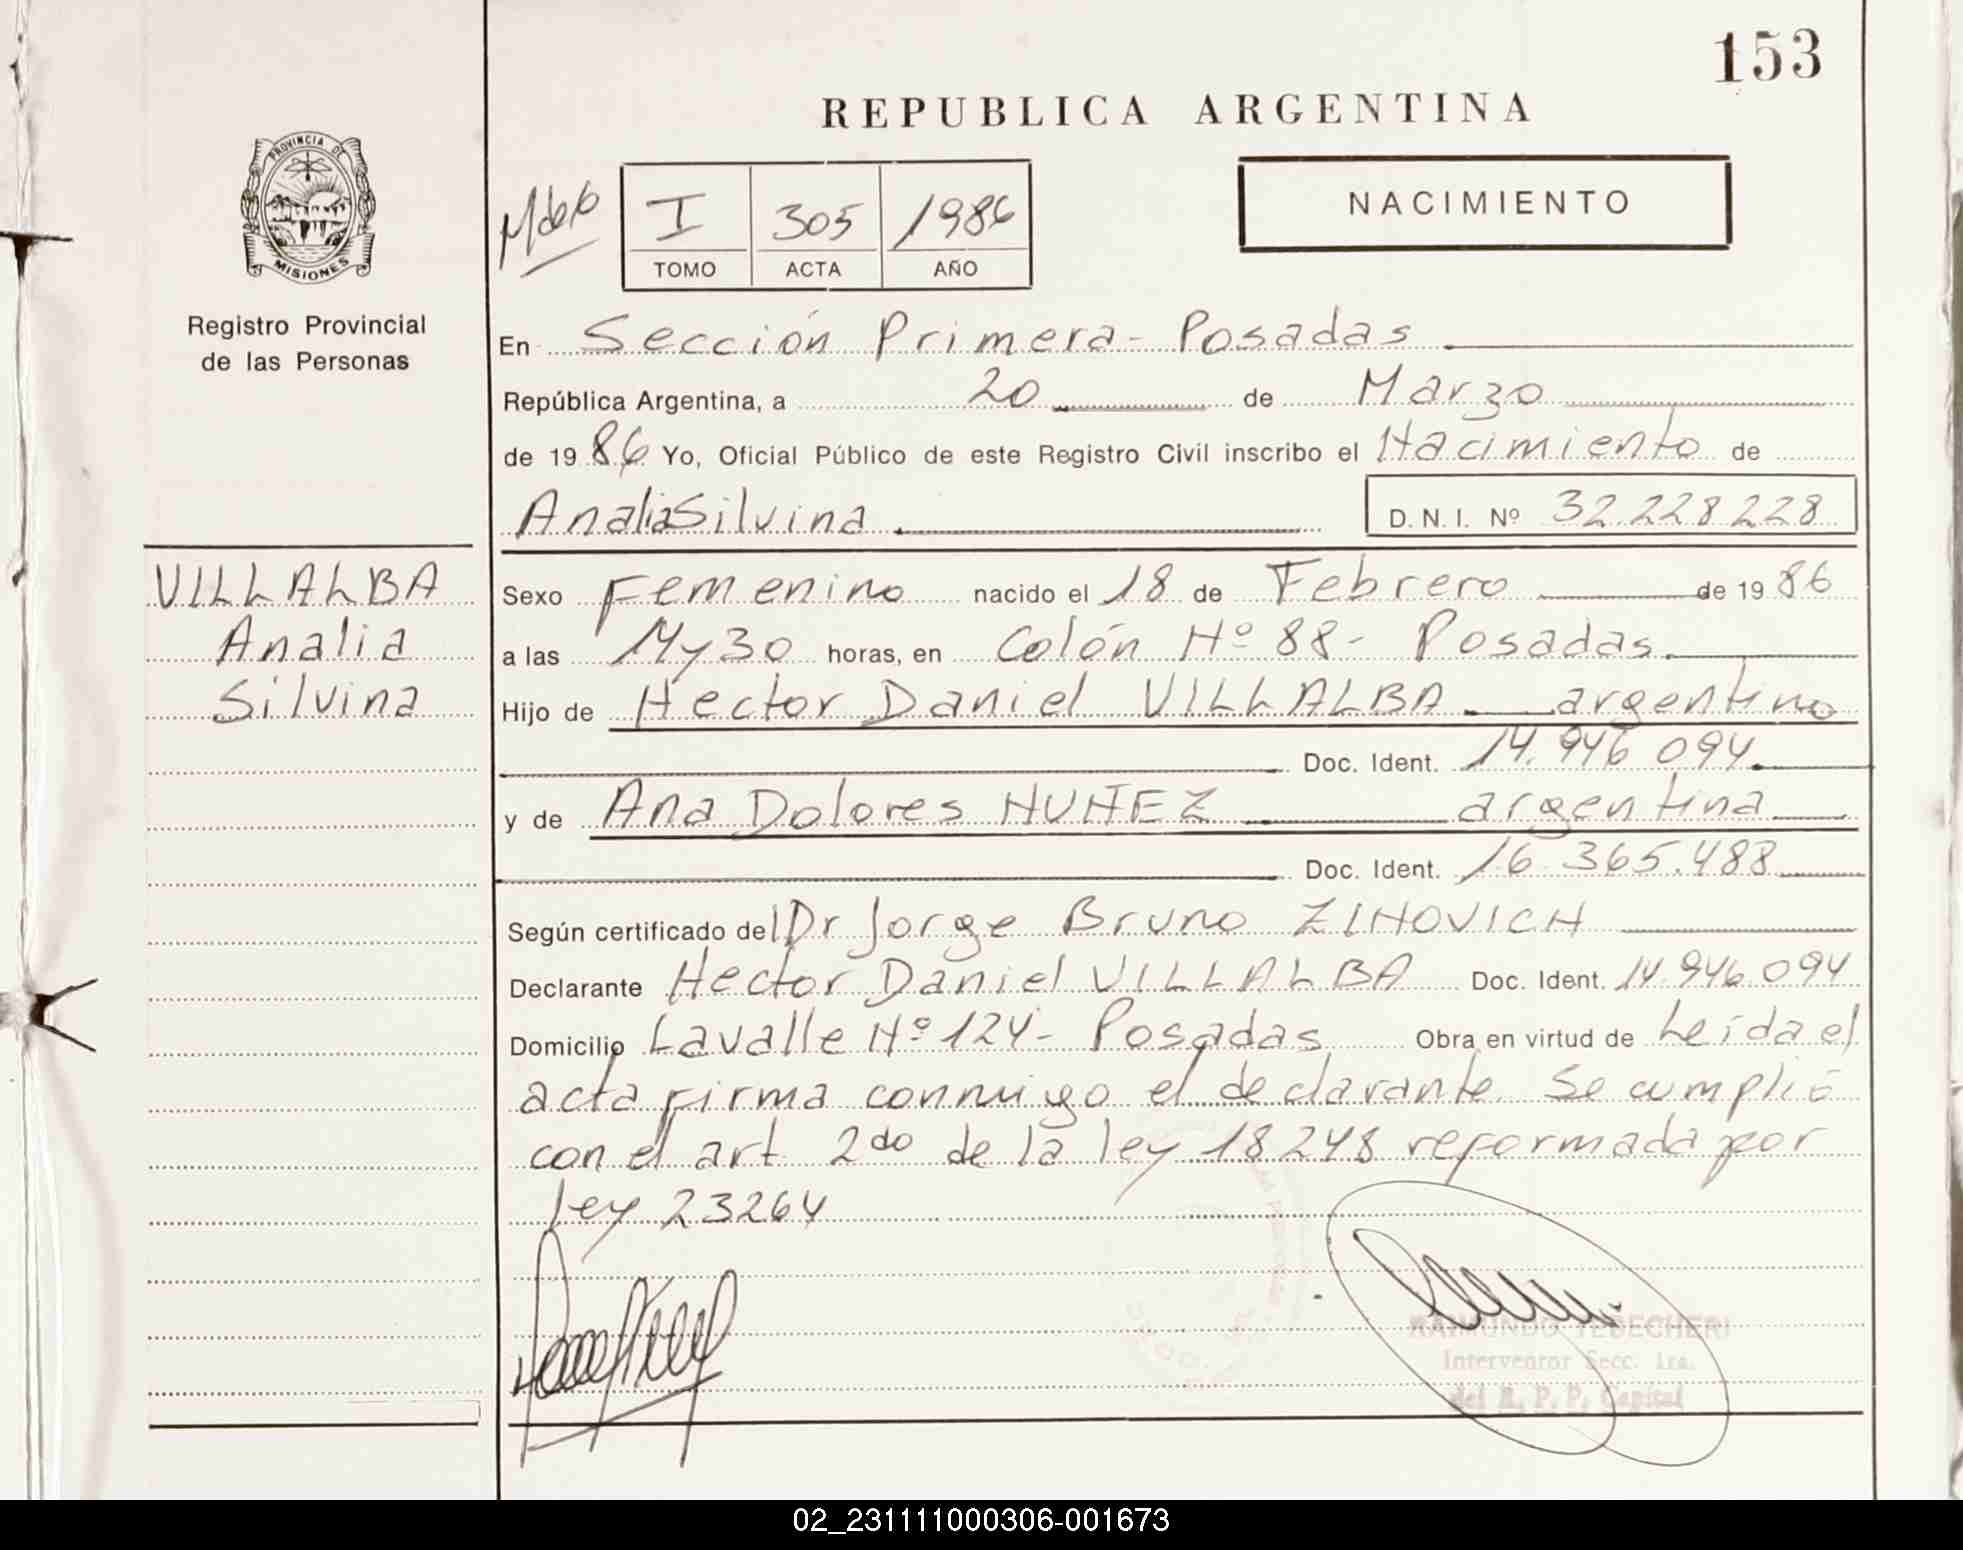 153
REPUBLICA ARGENTINA
PROVINCIA DE
MISIONES
Registro Provincial
de las Personas
I 305 1986
TOMO ACTA AÑO
NACIMIENTO
En Sección Primera - Posadas
República Argentina, a 20 de Marzo
de 1986 Yo, Oficial Público de este Registro Civil inscribo el Nacimiento de
Analia Silvina D.N.I. Nº 32.228.228
VILLALBA
Analia
Silvina
Sexo Femenino nacido el 18 de Febrero de 1986
a las 14 y 30 horas, en Colón Nº 88 - Posadas.
Hijo de Hector Daniel VILLALBA argentino
Doc. Ident. 14.946.094
y de Ana Dolores NUÑEZ argentina
Doc. Ident. 16.365.488
Según certificado del Dr Jorge Bruno ZINOVICH
Declarante Hector Daniel VILLALBA Doc. Ident. 14.946.094
Domicilio Lavalle Nº 124 - Posadas Obra en virtud de Leída el
acta firma conmigo el declarante. Se cumplió
con el art 2do de la ley 18248 reformada por
ley 23264
RAIMUNDO TEDECHERI
Interventor Secc. 1ra.
del R. P. P. Capital
02_231111000306-001673